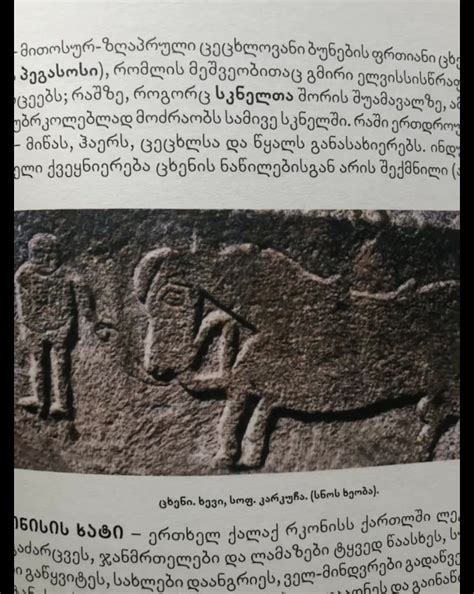 – მითოსურ-ზღაპრული ცეცხლოვანი ბუნების ფრთიანი ცხე
პეგასოსი), რომლის მეშვეობითაც გმირი ელვისსისწრაფ
ცეებს; რაშზე, როგორც სკნელთა შორის შუამავალზე, ა
უბრკოლებლად მოძრაობს სამივე სკნელში. რაში ერთდროუ
– მიწას, ჰაერს, ცეცხლსა და წყალს განასახიერებს. ინდუ
ელი ქვეყნიერება ცხენის ნაწილებისგან არის შექმნილი (
ცხენი. ხევი, სოფ. კარკუჩა. (სნოს ხეობა).
ონისის ხატი – ერთხელ ქალაქ რკონისს ქართლში ლე
გაძარცვეს, ჯანმრთელები და ლამაზები ტყვედ წაასხეს, ს
ი გაწყვიტეს, სახლები დაანგრიეს, ველ-მინდვრები გადაწვ